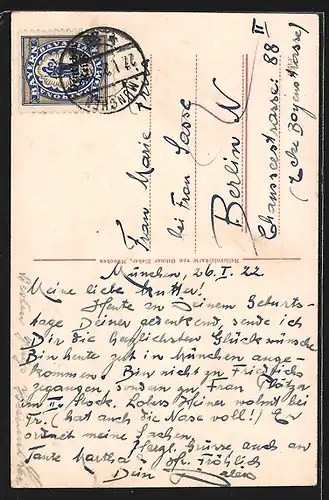 BAYERN
MÜNCHEN
27. I.
Frau Marie
bei Frau Sasse
Berlin N
Chausseestrasse: 88 II
(Ecke Boyenstrasse)
Heliokolorkarte von Ottmar Zieher, München
München, 26. I. 22
Meine liebe Mutter!
Heute an Deinem Geburts-
tage Deiner gedenkend, sende ich
Dir die herzlichsten Glückwünsche
Bin heute gut in München ange-
kommen. Bin nicht zu Friedrichs
gegangen, sondern zu Frau
im III. Stock. Heiner wohnt bei
Fr. (hat auch die Nase voll!) Er
ordnet meine Sachen.
Herzl. Grüsse auch an
Tante Martha & Fröhlich
Dein